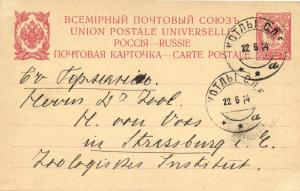 ВСЕМІРНЫЙ ПОЧТОВЫЙ СОЮЗЪ
UNION POSTALE UNIVERSELLE
РОССІЯ — RUSSIE
ПОЧТОВАЯ КАРТОЧКА — CARTE POSTALE
КОТЛЫ СПБ
22 6 14
а
Въ Германію.
Herrn Dr Zool.
КОТЛЫ СПБ
22 6 14
а
H. von Voss
in Strassburg i. E.
Zoologisches Institut.